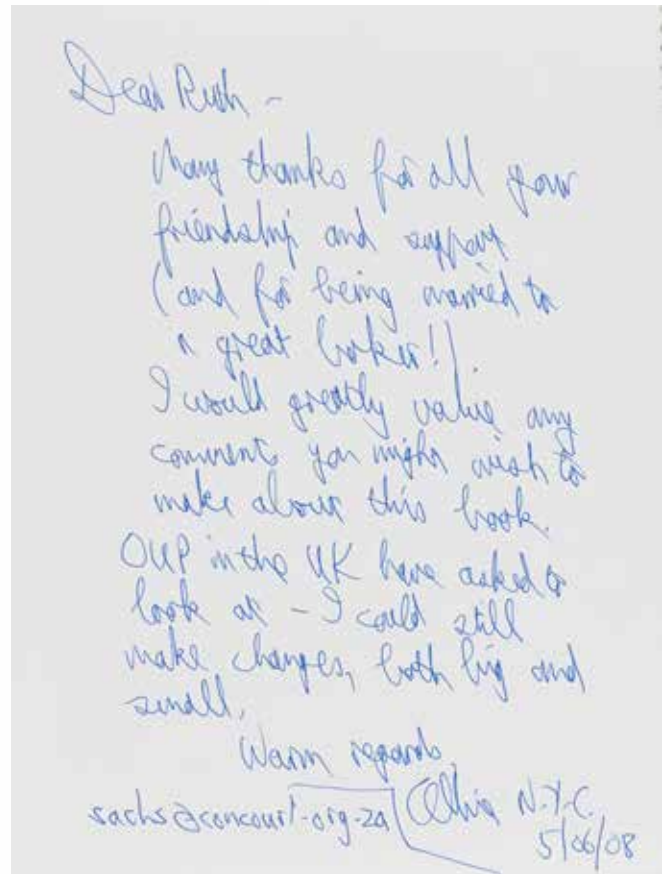 Dear Ruth -
Many thanks for all your
friendship and support
(and for being married to
a great looker!).
I would greatly value any
comments you might wish to
make about this book.
OUP in the UK have asked to
look at - I could still
make changes, both big and
small.
Warm regards,
sachs@concourt.org.za Albie N.Y.C.
5/06/08